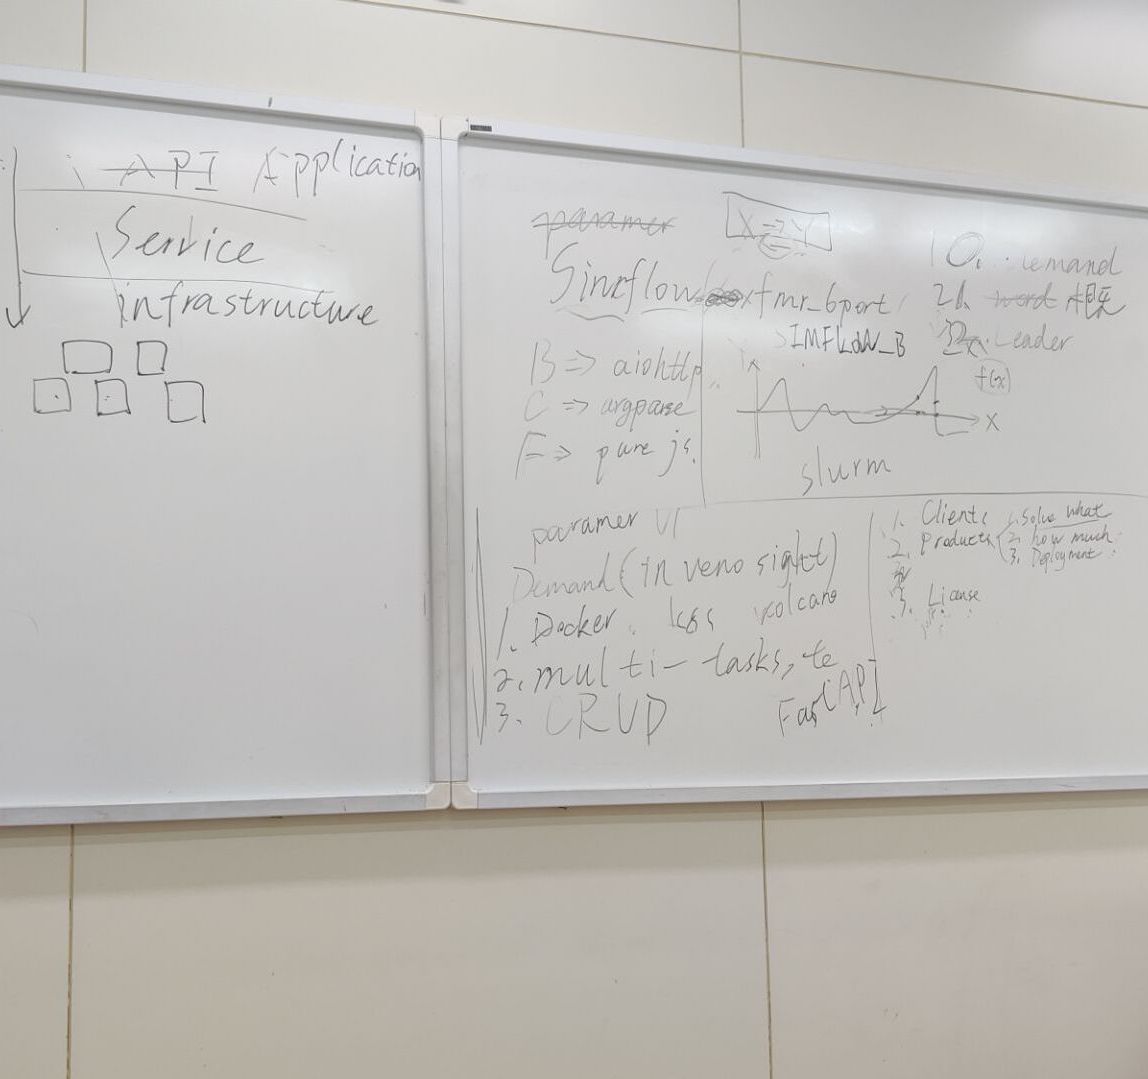 API Application
Service
infrastructure
paramer
X => Y
Sinxflow
fmr_6port
IMFLOW_B
B => aiohttp
C => argparse
F => pure js.
0. Demand
word
Leader
Y
f(x)
X
slurm
paramer UI
Demand (in veno sight)
1. Docker. k8s volcano
2. multi-tasks, te
3. CRUD
FastAPI
1. Clients
2. Products
1. Solve what
2. how much
3. Deployment
3. License